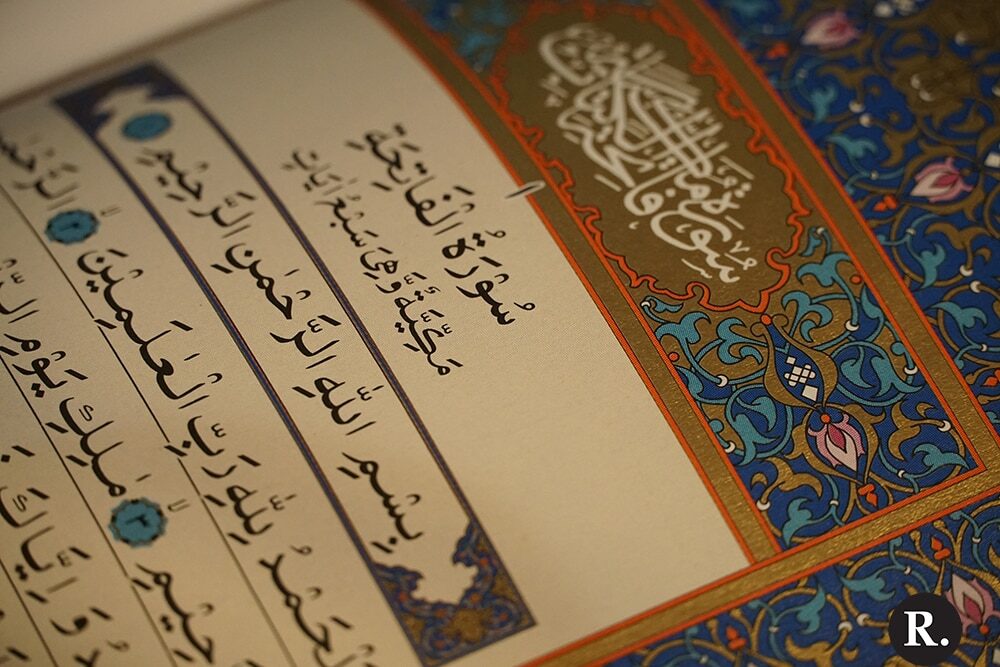 سورة فاتحة
سُوْرَةُ الْفَاتِحَةِ
مَكِّيَّةٌ وَّهِىَ سَبْعُ اٰيَاتٍ
بِسْمِ اللّٰهِ الرَّحْمٰنِ الرَّحِيْمِ
لْحَمْدُ لِلّٰهِ رَبِّ الْعٰلَمِيْنَ ٢ الرَّحْمٰ
حِيْمِ ٣ مٰلِكِ يَوْمِ الدِّ
دُ وَاِيَّاكَ نَ
R.